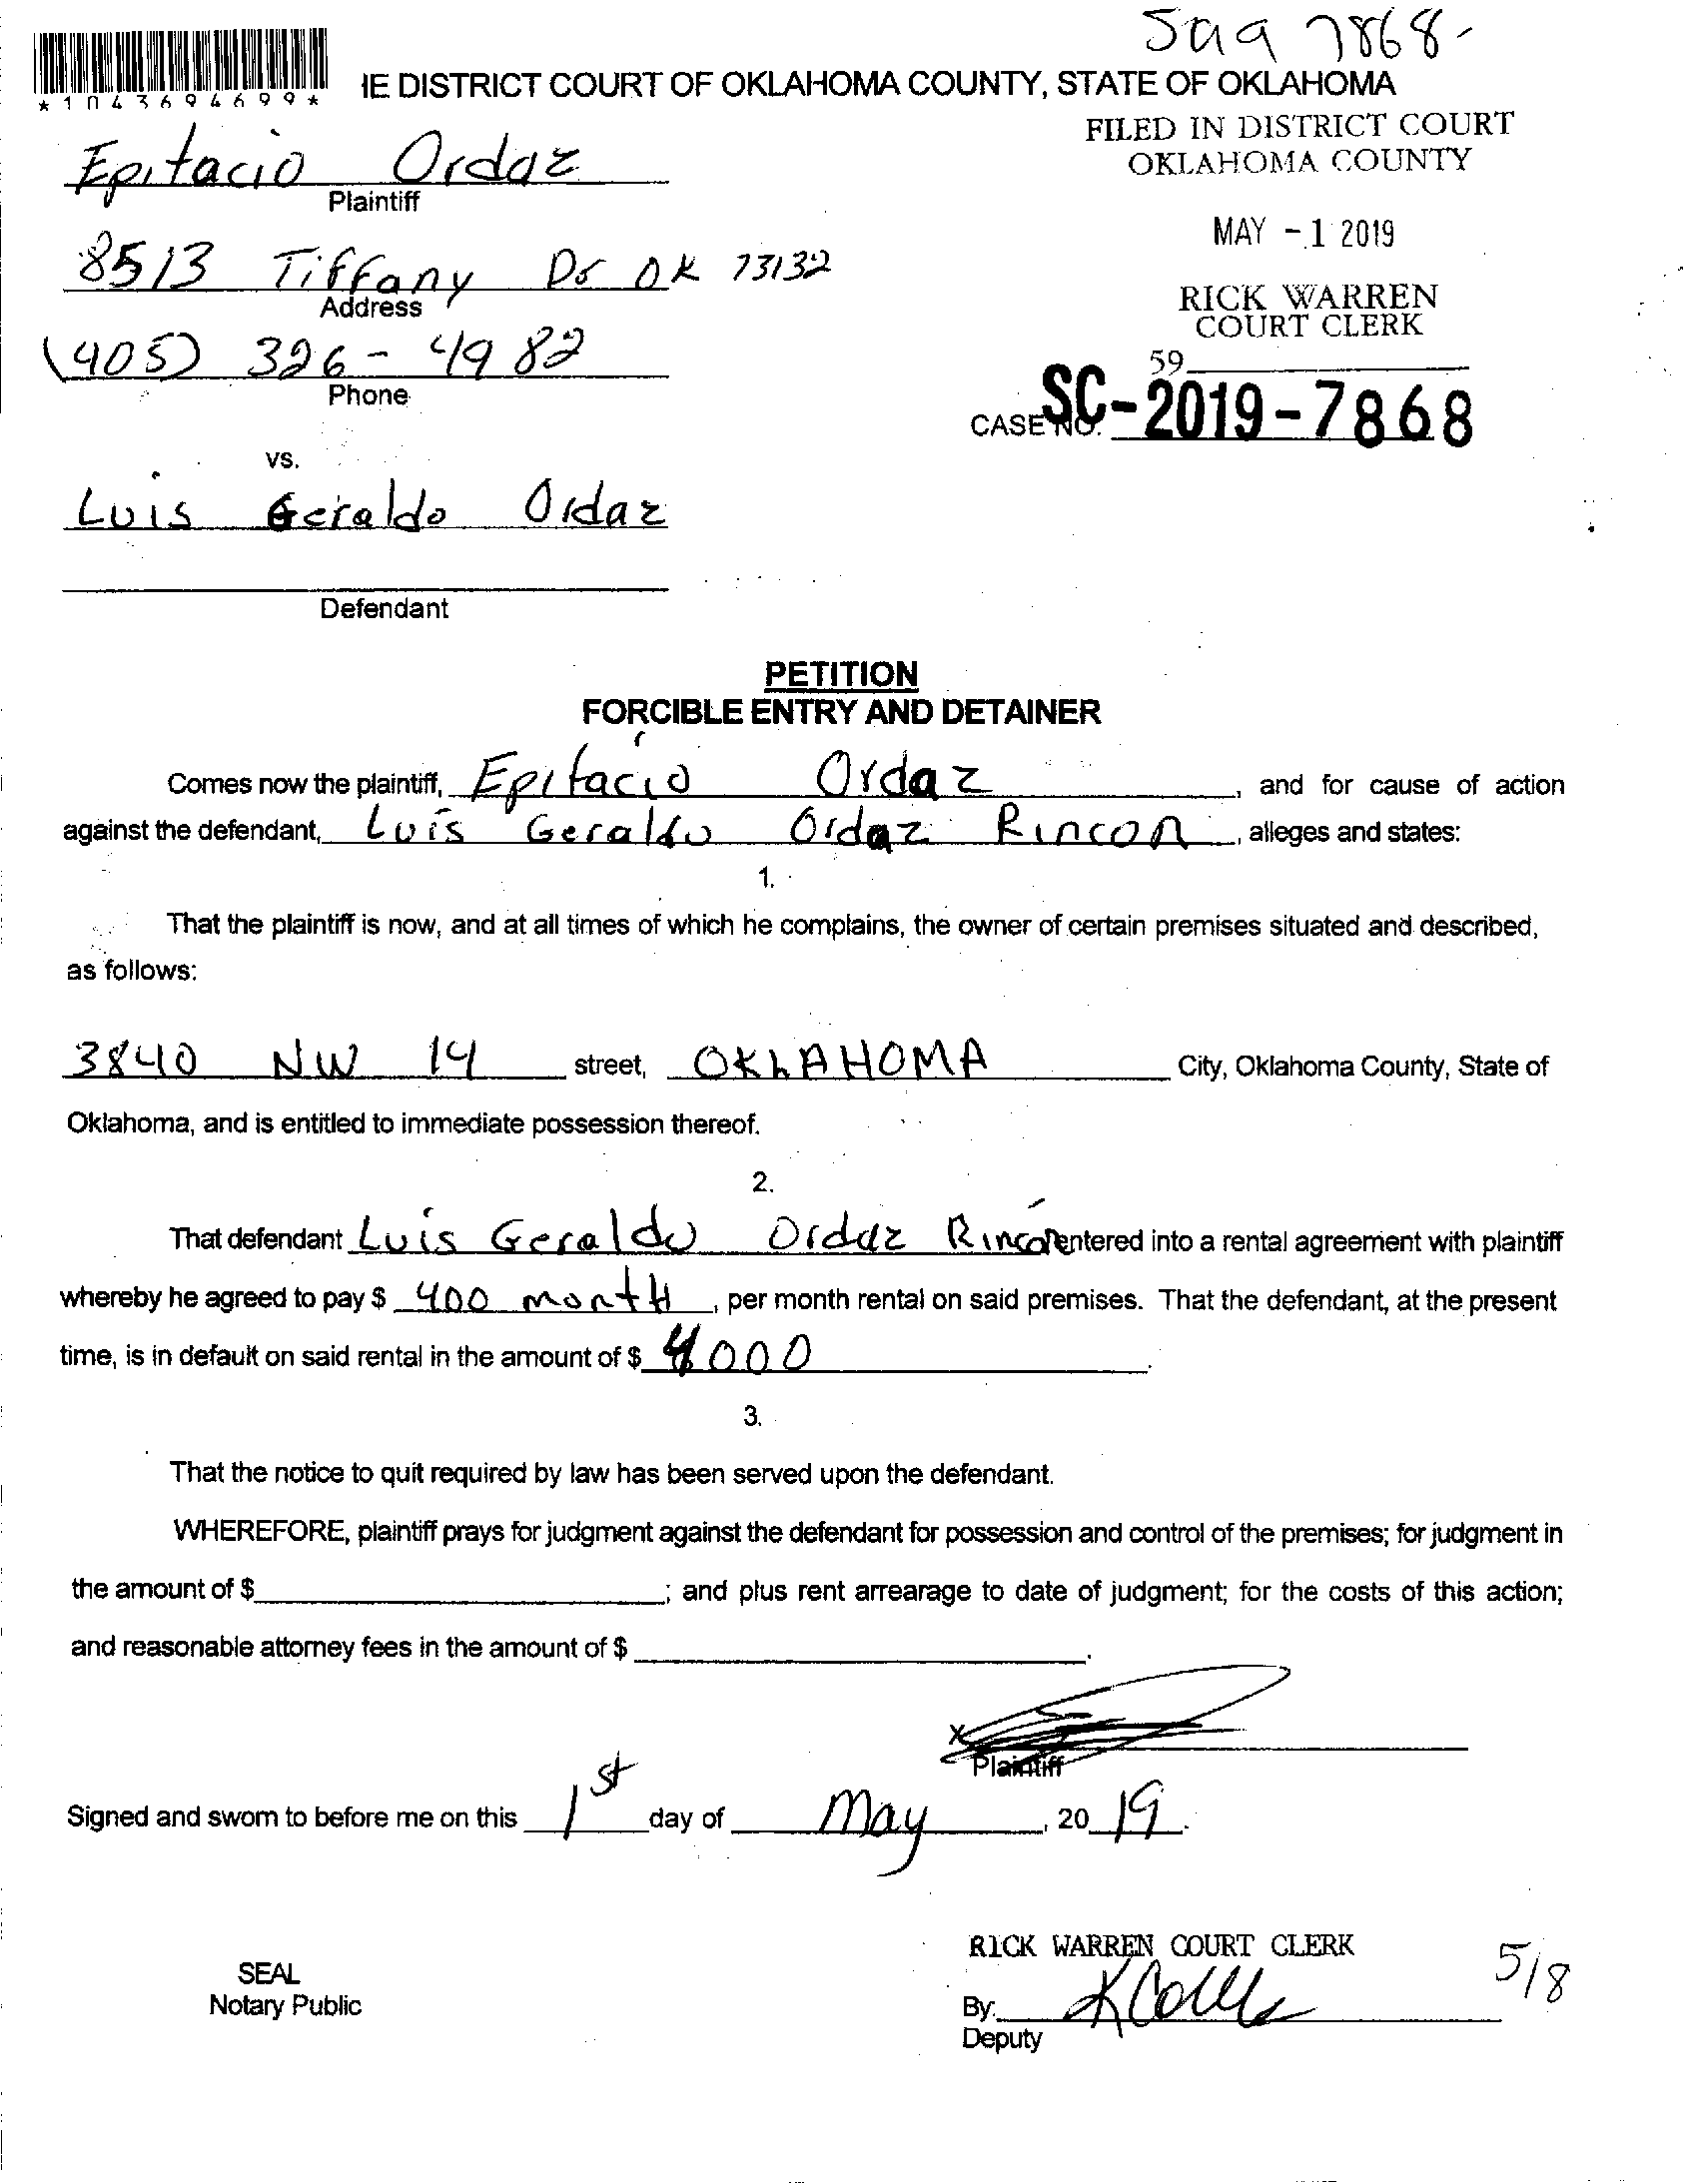 Saq 7868-
*1043694699*
IE DISTRICT COURT OF OKLAHOMA COUNTY, STATE OF OKLAHOMA
FILED IN DISTRICT COURT
OKLAHOMA COUNTY
Epitacio Ordaz
Plaintiff
MAY - 1 2019
8513 Tiffany Dr OK 73132
Address
RICK WARREN
COURT CLERK
(405) 326-4982
Phone
59
CASE NO. SC-2019-7868
vs.
Luis Geraldo Ordaz
Defendant
PETITION
FORCIBLE ENTRY AND DETAINER
Comes now the plaintiff, Epitacio Ordaz, and for cause of action
against the defendant, Luis Geraldo Ordaz Rincon, alleges and states:
1.
That the plaintiff is now, and at all times of which he complains, the owner of certain premises situated and described,
as follows:
3840 NW 14 street, OKLAHOMA City, Oklahoma County, State of
Oklahoma, and is entitled to immediate possession thereof.
2.
That defendant Luis Geraldo Ordaz Rincon entered into a rental agreement with plaintiff
whereby he agreed to pay $ 400 month, per month rental on said premises. That the defendant, at the present
time, is in default on said rental in the amount of $ 4000.
3.
That the notice to quit required by law has been served upon the defendant.
WHEREFORE, plaintiff prays for judgment against the defendant for possession and control of the premises; for judgment in
the amount of $ ; and plus rent arrearage to date of judgment; for the costs of this action;
and reasonable attorney fees in the amount of $ .
X
Plaintiff
Signed and sworn to before me on this 1st day of May, 2019.
RICK WARREN COURT CLERK
5/8
SEAL
Notary Public
By:
Deputy